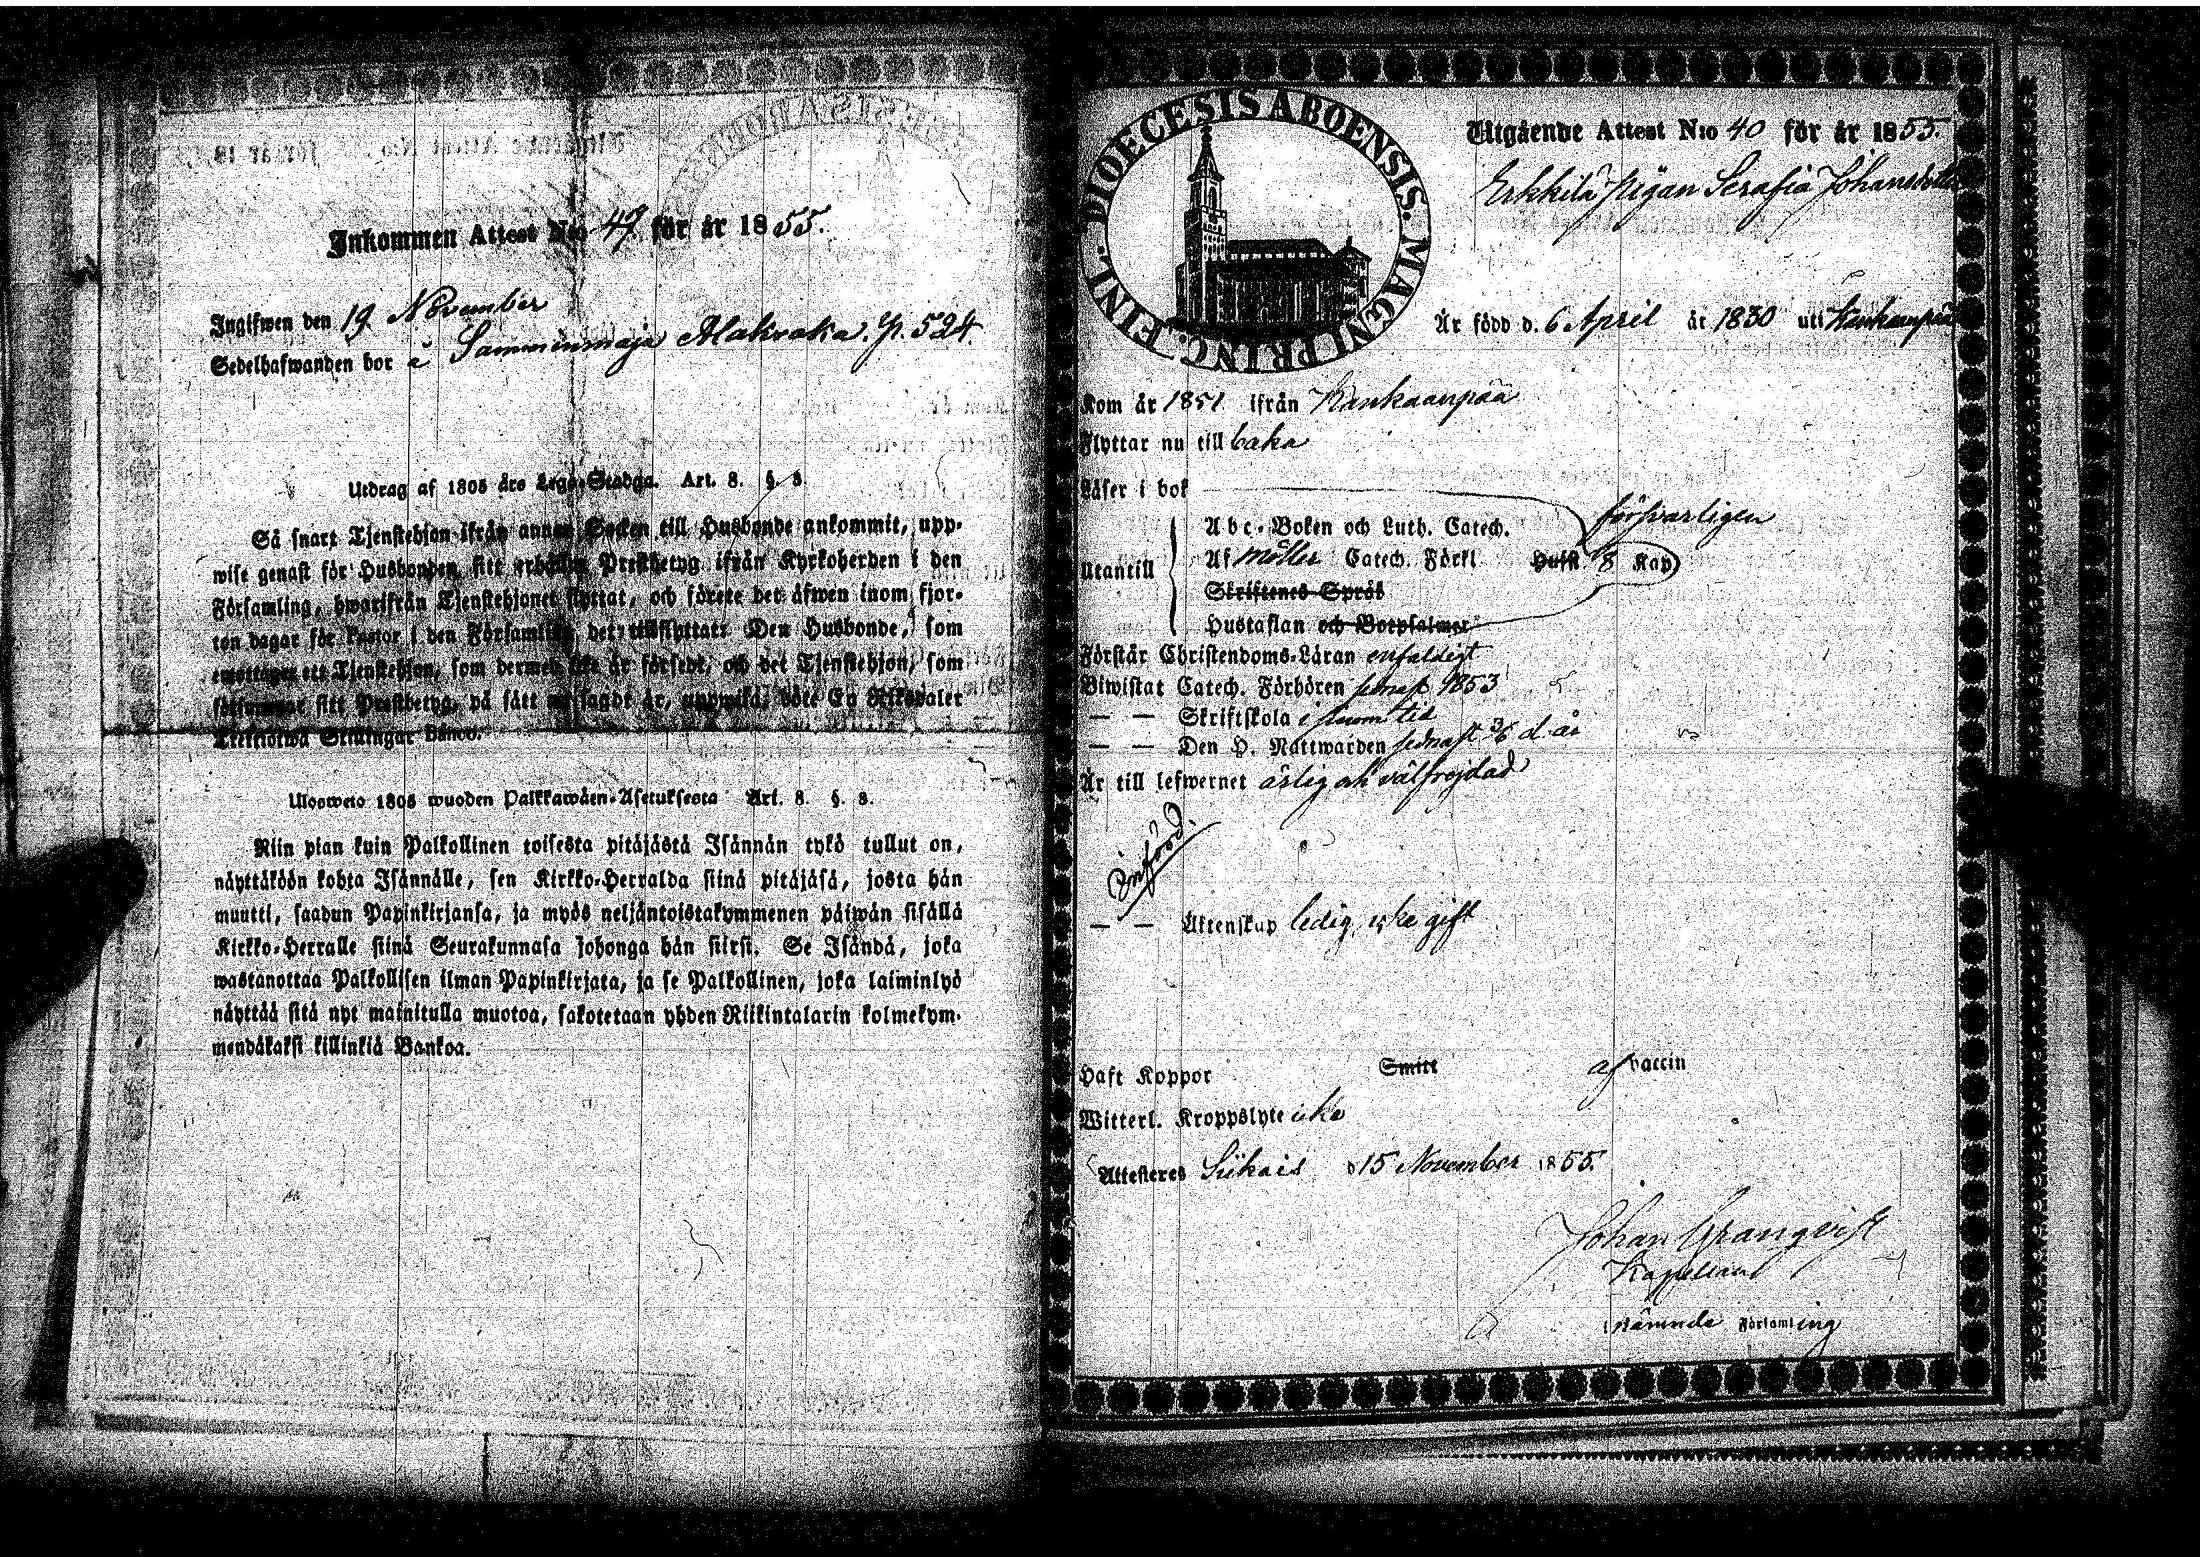 Inkommen Attest N:o 47 för år 1855.
Ingifwen den 19 November
Sedelhafwanden bor å Samminmaja Alakraka. p. 524.
Utdrag af 1805 års Lego-Stadga. Art. 8. §. 8.
Så snart Tjenstehjon ifrån annan Socken till Husbonde ankommit, upp-
wise genast för Husbonden sitt erhållna Prestbetyg ifrån Kyrkoherden i den
Församling, hwarifrån Tjenstehjonet flyttat, och förete det äfwen inom fjor-
ton dagar för Pastor i den Församling det tillflyttat. Den Husbonde, som
emottager ett Tjenstehjon, som dermed icke är försedt, och det Tjenstehjon, som
försummar sitt Prestbetyg, på sätt nu sagdt är, uppwisa, böte En Riksdaler
Trettiotwå Skillingar Banco.
Ulosweto 1805 wuoden Palkkawäen-Asetuksesta Art. 8. §. 8.
Niin pian kuin Palkollinen toisesta pitäjästä Isännän tykö tullut on,
näyttäköön kohta Isännälle, sen Kirkko-Herralda siinä pitäjäsä, josta hän
muutti, saadun Papinkirjansa, ja myös neljäntoistakymmenen päiwän sisällä
Kirkko-Herralle siinä Seurakunnasa johonga hän siirsi. Se Isändä, joka
wastanottaa Palkollisen ilman Papinkirjata, ja se Palkollinen, joka laiminlyö
näyttää sitä nyt mainitulla muotoa, sakotetaan yhden Riikintalarin kolmekym-
mendäkaksi killinkiä Bankoa.
DIOECESIS ABOENSIS. MAGNI PRINC. FINL.
Utgående Attest N:o 40 för år 1855.
Erkkilä Pigan Serafia Johansdotter
Är född d. 6 April år 1830 uti Kankaanpää
Kom år 1851 ifrån Kankaanpää
Flyttar nu till baka
Läser i bok försvarligen
Utantill
Abc-Boken och Luth. Catech.
Af Möller Catech. Förkl Husst 8 Kap
Skriftenes Språk
Hustaflan och Botpsalmer
Förstår Christendoms-Läran enfaldigt
Biwistat Catech. Förhören senast 1853
— — Skriftskola i sinom tid
— — Den H. Nattwarden senast 3/6 d. år
Är till lefwernet ärlig och välfrejdad
Införd.
— — Äktenskap ledig, icke gift
Haft Koppor Smitt af vaccin
Witterl. Kroppslyte icke
Attesteras Siikais d 15 November 1855.
Johan Granqvist
Kapellan
i nämnde Församling